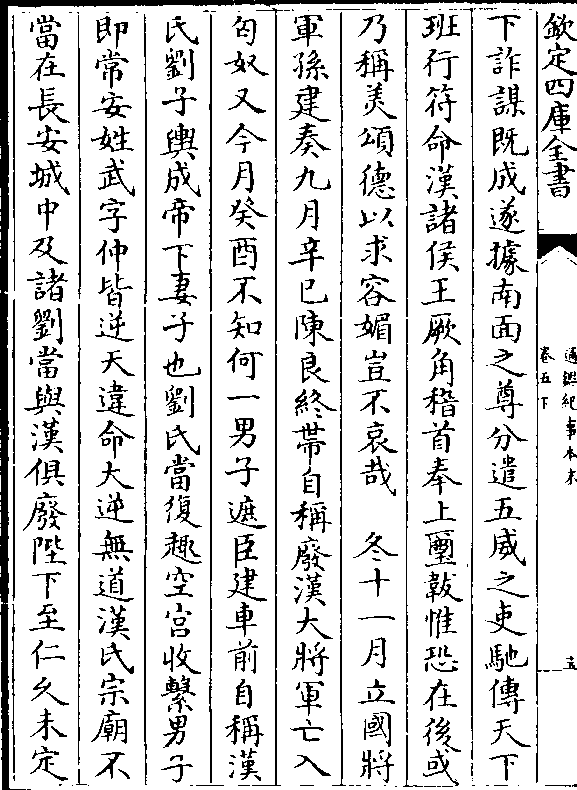 欽定四庫全書
通鑑紀事本末
卷五下
下詐謀既成遂據南面之尊分遣五威之吏馳傳天下
班行符命漢諸侯王厥角稽首奉上璽韍惟恐在後或
乃稱美頌德以求容媚豈不哀哉　冬十一月立國將
軍孫建奏九月辛巳陳良終帶自稱廢漢大將軍亡入
匈奴又今月癸酉不知何一男子遮臣建車前自稱漢
氏劉子輿成帝下妻子也劉氏當復趣空宫收繫男子
即常安姓武字仲皆逆天違命大逆無道漢氏宗廟不
當在長安城中及諸劉當與漢俱廢陛下至仁久未定